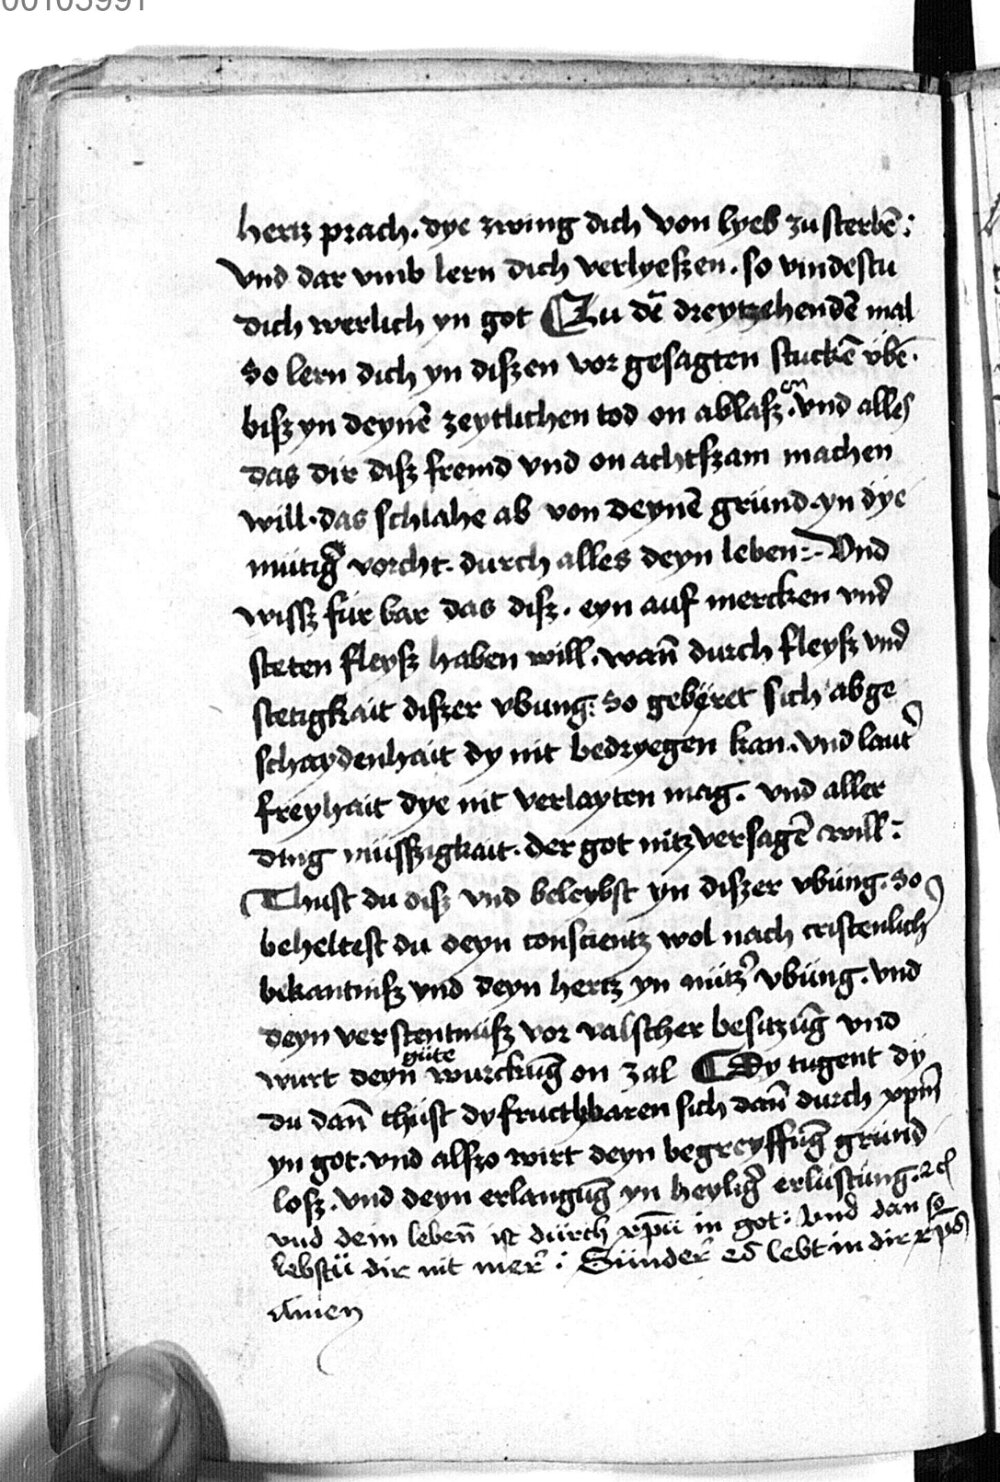 00103991
hertz prach. dye zwing dich von lyeb zu sterbē:
vnd dar vmb lern dich verlyeszen. so vindestu
dich werlich yn got Zu dē dreytzehendē mal
So lern dich yn diszen vor gesagten stuckē vbē.
bisz yn deynē zeytlichen tod on ablasz. vnd alles
das dir disz fremd vnd on achtszam machen
will. das schlahe ab von deynē gründ. yn dye
mütig̃ vorcht. durch alles deyn leben:. Vnd
wissz für bar das disz. eyn auf mercken vnd
steten fleysz haben will. wañ durch fleysz vnd
stetigkait diszer vbung: So geberet sich abge
schaydenhait dy nit bedryegen kan. vnd laut̉
freyhait dye nit verlayten mag. vnd aller
ding müsszigkait. der got nitz versagē will:
Thust du disz vnd beleybst yn diszer vbüng. So
beheltest du deyn conscientz wol nach cristenlich̉
bekantnisz vnd deyn hertz yn nütz̉ vbüng. vnd
deyn verstentnüsz vor valscher besitzūg vnd
güte
wurt deyn wurckūg on zal Dy tugent dy
du dañ thüst dy fruchtbaren sich dañ durch xpm̄
yn got. vnd alszo wirt deyn begreyffūg gründ
losz. vnd deyn erlangūg yn heylig̉ erlüstüng. ꝛc
vnd dein lebeñ ist dürch xpū in got: vnd dan so
lebstü dir nit mer̉: Sünder̉ es lebt in dir xpūs
Amen